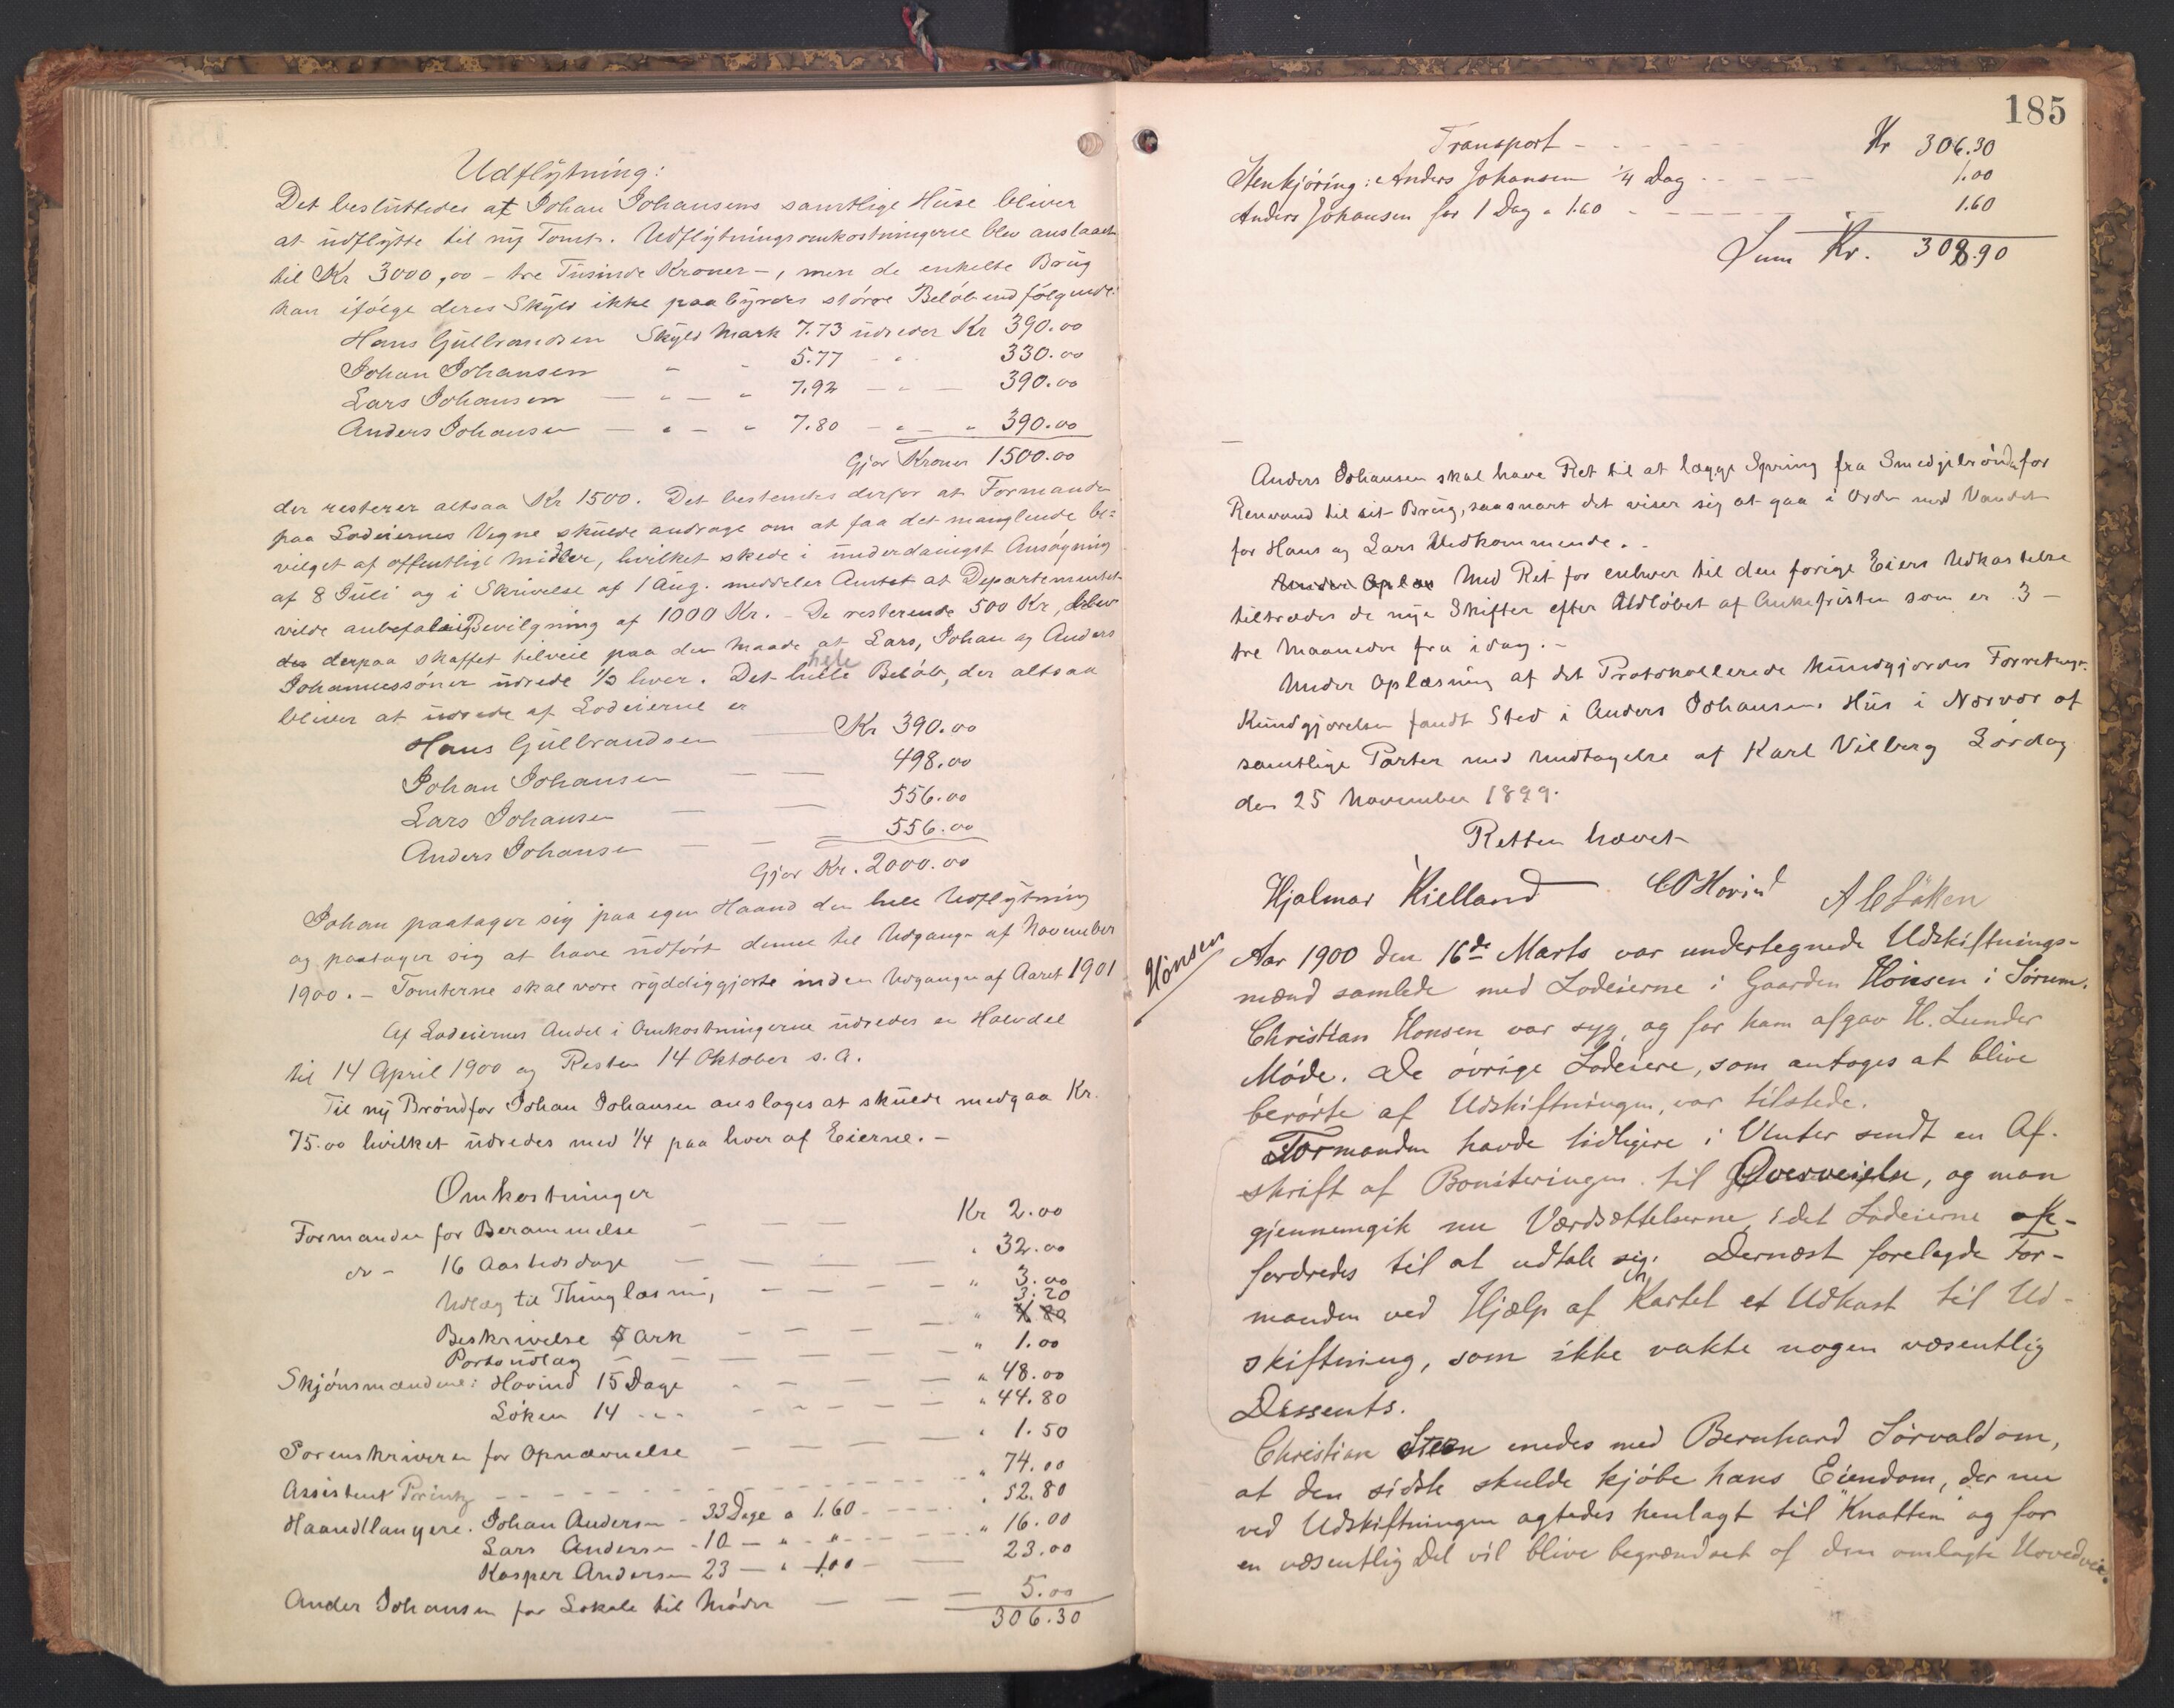 Udflÿtning:
Det besluttedes at Johan Johansens samtlige Huse bliver
at udflytte til ny Tomt. Udflytningsomkostningerne blev anslaaet
til Kr 3000,00 – tre Tusinde Kroner –, men de enkelte Brug
kan ifølge deres Skyld ikke paabyrdes større Beløb end følgende:
Hans Gulbrandsen Skyld Mark 7.73 udreder Kr 390.00
Johan Johansen - - 5.77 - " 330.00
Lars Johansen — " — " 7.92 — " — 390.00
Anders Johansen — " — " 7.80 — " — " 390.00
Gjør Kroner 1500.00
der resterer altsaa Kr 1500. Det bestemtes derfor at Formanden
paa Lodeiernes Vegne skulde andrage om at faa det manglende be=
vilget af offentlige Midler, hvilket skede i underdanigst Ansøgning
af 8 Juli og i Skrivelse af 1 Aug. meddeler Amtet at Departementet
vilde anbefale Bevilgning af 1000 Kr. – De resterende 500 Kr, blev
derpaa skaffet tilveie paa den Maade at Lars, Johan og Anders
Johannessøner udrede 1/3 hver. Det hele Beløb, der altsaa
bliver at udrede af Lodeierne er
Hans Gulbrandsen — Kr 390.00
Johan Johansen — — 498.00
Lars Johansen — — 556.00
Anders Johansen — — 556.00
Gjør Kr. 2000.00
Johan paatager sig paa egen Haand den hele Udflytning
og paatager sig at have udført denne til Udgangen af November
1900. – Tomterne skal være ryddiggjorte inden Udgangen af Aaret 1901
Af Lodeiernes Andel i Omkostningerne udredes en Halvdel
til 14 April 1900 og Resten 14 Oktober s.a.
Til ny Brønd for Johan Johansen anslages at skulde medgaa Kr.
75.00 hvilket udredes med 1/4 paa hver af Eierne. –
Omkostninger
Formanden for Berammelse — — — Kr 2.00
do – 16 Aastedsdage — — — — " 32.00
Udlæg til Thinglæsning — — — " 3.00
3.20
Beskrivelse Ark — — — — "
Portoudlæg — — — — — " 1.00
Skjønsmændene: Hovind 15 Dage - — — — " 48.00
Løken 14 - " - - — — — " 44.80
Sorenskriveren for Opnævnelse — — — — " 1.50
Assistent Printz - - - - - - " 74.00
Haandlangere. Johan Andersen - 33 Dage a 1.60 - - - " 52.80
Lars Andersen - 10 — " " - - - " 16.00
Kasper Andersen 23 — " 1.00 — — 23.00
Ander Johansen for Lokale til Møder — — — 5.00
306.30
185
Transport - - - - - Kr 306.30
Stenkjøring: Anders Johansen 1/4 Dag - - - — 1.00
Anders Johansen for 1 Dag a 1.60 - - - - - 1.60
Sum Kr. 308.90
Anders Johansen skal have Ret til at lægge Spring fra Smedjebrønden for
Renvand til sit Brug, saasnart det viser sig at gaa i Orden med Vandet
for Hans og Lars Vedkommende. –
Med Ret for enhver til den forige Eiers Udkastelse
tiltrædes de nye Skifter efter Udløbet af Ankefristen som er 3 –
tre Maaneder fra idag. –
Under Oplæsning af det Protokollerede kundgjordes Forretnin-
Kundgjørelsen fandt Sted i Anders Johansens Hus i Nærvær af
samtlige Parter med Undtagelse af Karl Vilberg Lørdag
den 25 November 1899.
Retten hævet
Hjalmar Kielland CO Hovind A C Løken
Hønsen
Aar 1900 den 16de Marts var undertegnede Udskiftnings-
mænd samlede med Lodeierne i Gaarden Hønsen i Sørum.
Christian Honsen var syg, og for ham afgav H. Lunder
Møde. De øvrige Lodeiere, som antoges at blive
berørte af Udskiftningen, var tilstede.
Formanden havde tidligere i Vinter sendt en Af-
skrift af Boniteringen til Overveielse, og man
gjennemgik nu Værdsættelserne, idet Lodeierne
fordredes til at udtale sig. Dernæst forelagde For-
manden ved Hjælp af Kartet et Udkast til Ud-
skiftning, som ikke vakte nogen væsentlig
Dissents.
Christian Steen enedes med Bernhard Sørvald om,
at den sidste skulde kjøbe hans Eiendom, der nu
ved Udskiftningen agtedes henlagt til "Knatten" og for
en væsentlig Del vil blive begrændset af den omlagte Hovedvei.